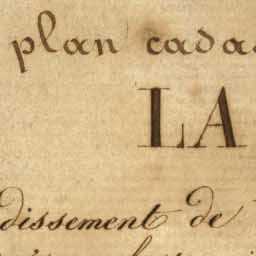 plan cada
LA
dissement de